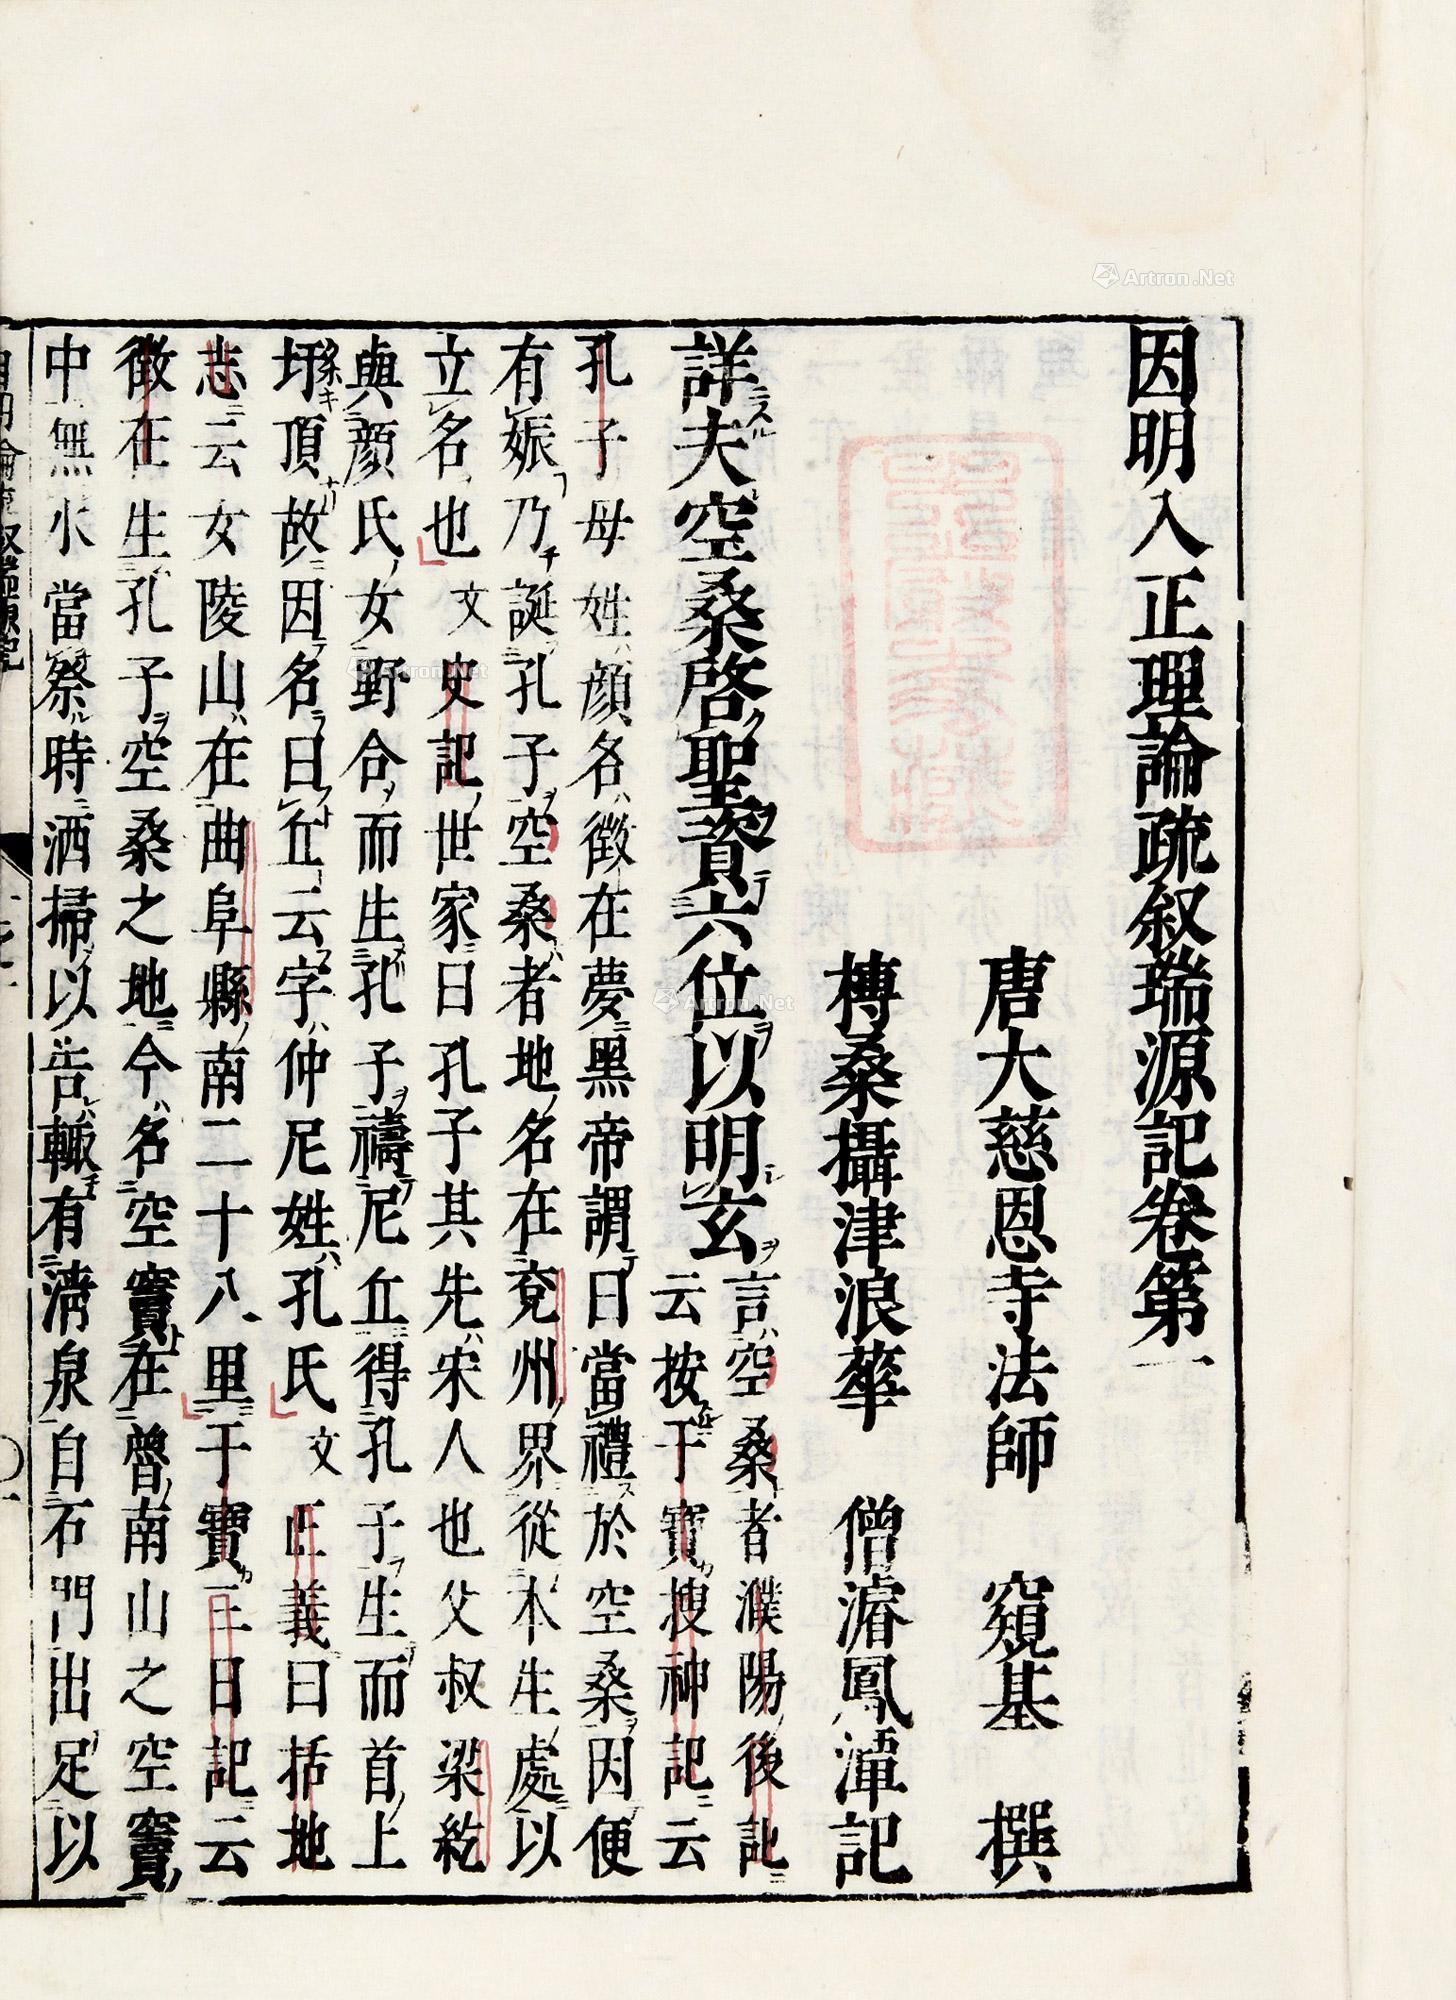 因明入正理論疏叙瑞源記卷第一
唐大慈恩寺法師　窺基　撰
榑桑攝津浪華　僧濬鳳潭記
詳夫空桑啓聖資六位以明玄
言空桑者濮陽後記
云按干寶搜神記云
孔子母姓顔名徵在夢黑帝謂曰當禮於空桑因便
有娠乃誕孔子空桑者地名在兗州界從本生處以
立名也　文　史記世家曰孔子其先宋人也父叔梁紇
與顔氏女野合而生孔子禱尼丘得孔子生而首上
圩頂故因名曰丘云字仲尼姓孔氏　文　正義曰括地
志云女陵山在曲阜縣南二十八里干寶三日記云
徵在生孔子空桑之地今名空竇在魯南山之空竇
中無水當祭時洒掃以告輙有淸泉自石門出足以
Artron.Net
Artron.Net
Artron.Net